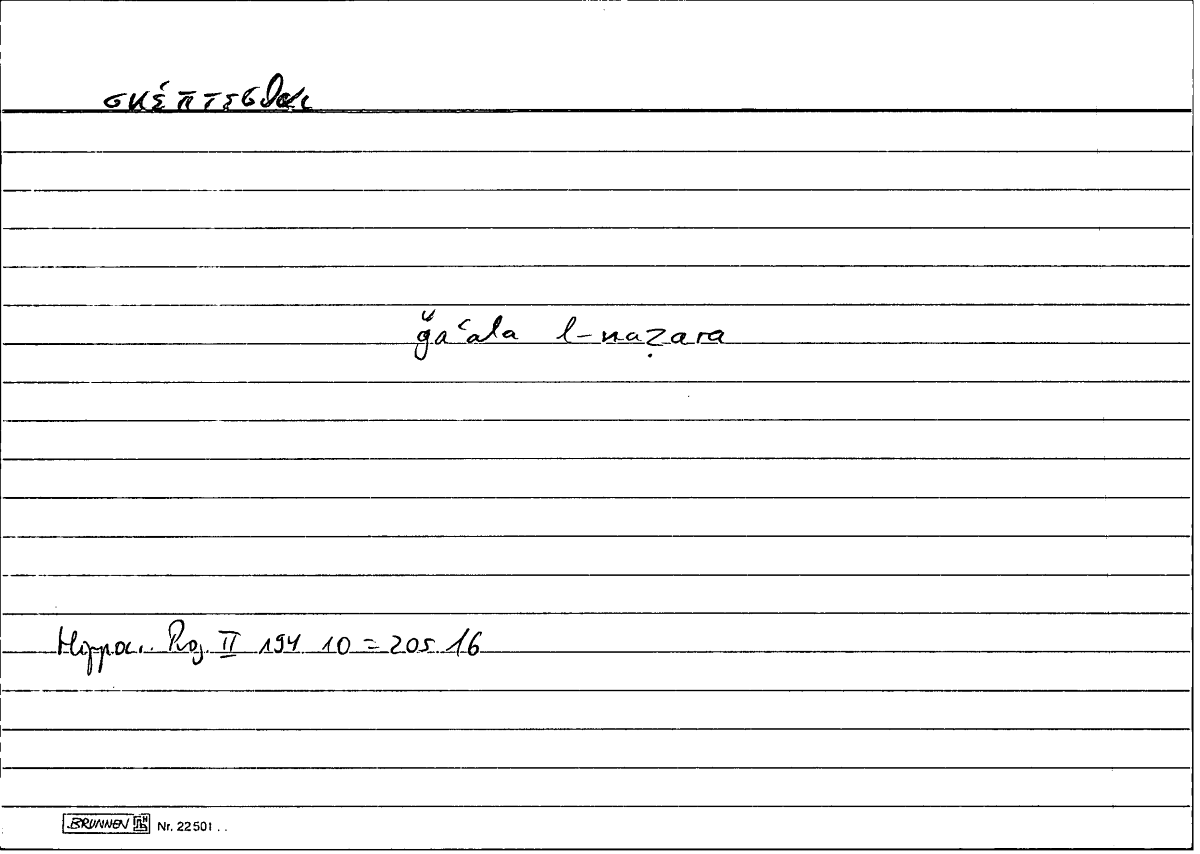 σκέπτεσθαι
ǧaʿala l-naẓara
Hippocr. Prog. II 194 10 = 205 16
BRUNNEN Nr. 22501 . .